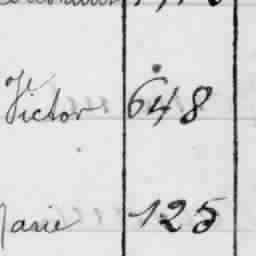 Victor 648
Marie 125